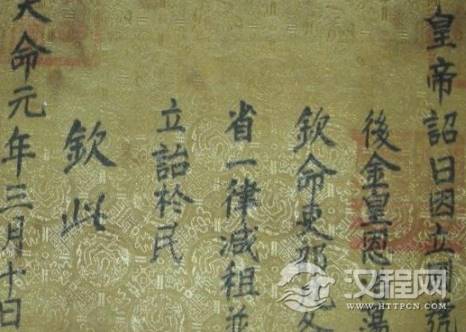 皇帝詔曰因立國號
後金皇恩
欽命吏部
省一律減租並
立詔於民
欽此
天命元年三月十日
汉程网
WWW.HTTPCN.COM